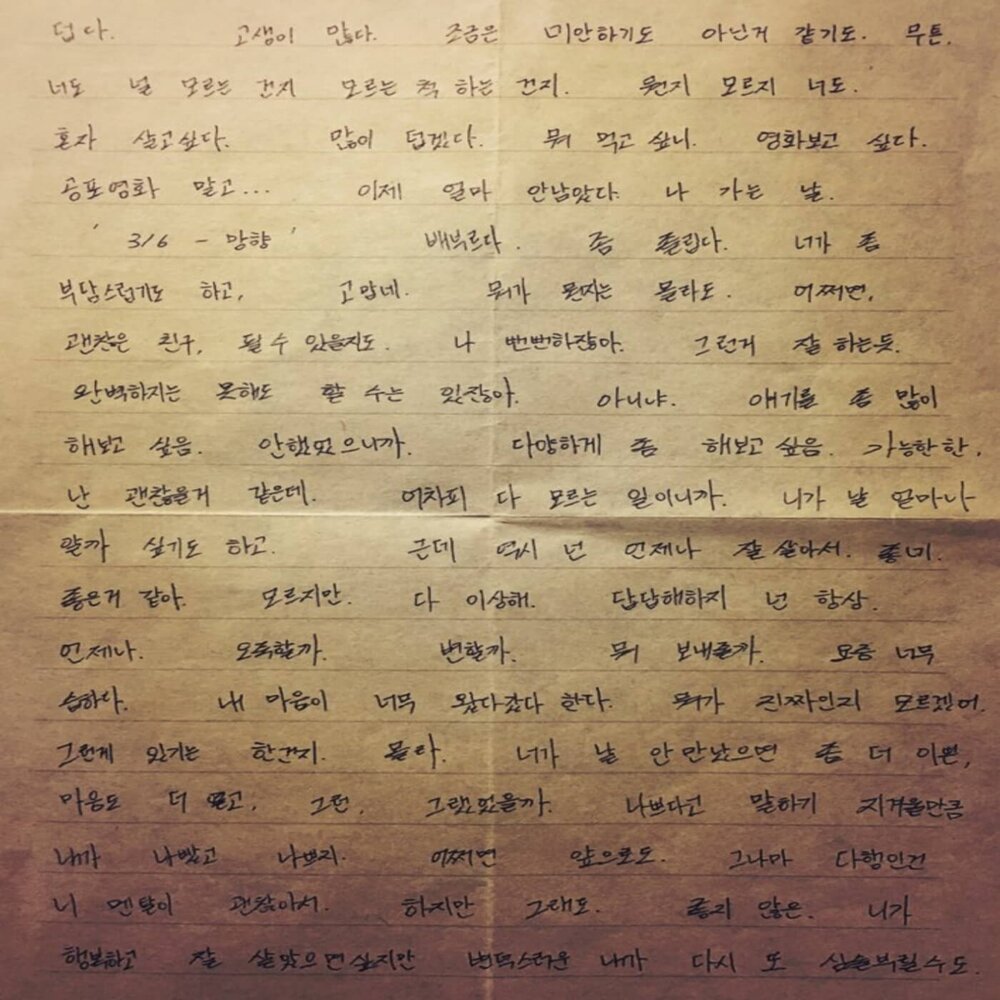 덥다. 고생이 많다. 조금은 미안하기도 아닌거 같기도. 무튼.
너도 널 모르는 건지 모르는 척 하는 건지. 뭔지 모르지 너도.
혼자 살고싶다. 많이 덥겠다. 뭐 먹고 싶니. 영화보고 싶다.
공포영화 말고... 이제 얼마 안남았다. 나 가는 날.
' 3/6 - 망향 ' 배부르다. 좀 졸립다. 너가 좀
부담스럽기도 하고, 고맙네. 뭐가 뭔지는 몰라도. 어쩌면,
괜찮은 친구, 될 수 있을지도. 나 뻔뻔하잖아. 그런거 잘 하는듯.
완벽하지는 못해도 할 수는 있잖아. 아니냐. 얘기를 좀 많이
해보고 싶음. 안했었으니까. 다양하게 좀 해보고 싶음. 가능한 한,
난 괜찮을거 같은데. 어차피 다 모르는 일이니까. 니가 날 얼마나
알까 싶기도 하고. 근데 역시 넌 언제나 잘 살아서. 좋네.
좋은거 같아. 모르지만. 다 이상해. 답답해하지 넌 항상.
언제나. 오죽할까. 변할까. 뭐 보내줄까. 요즘 너무
습하다. 내 마음이 너무 왔다갔다 한다. 뭐가 진짜인지 모르겠어.
그런게 있기는 한건지. 몰라. 너가 날 안 만났으면 좀 더 이쁜,
마음도 더 고, 그런, 그랬었을까. 나쁘다고 말하기 지겨울만큼
내가 나빴고 나쁘지. 어쩌면 앞으로도. 그나마 다행인건
니 멘탈이 괜찮아서. 하지만 그래도. 좋지 않은. 니가
행복하고 잘 살았으면싶지만 변덕스러운 내가 다시 또 심술부릴수도.